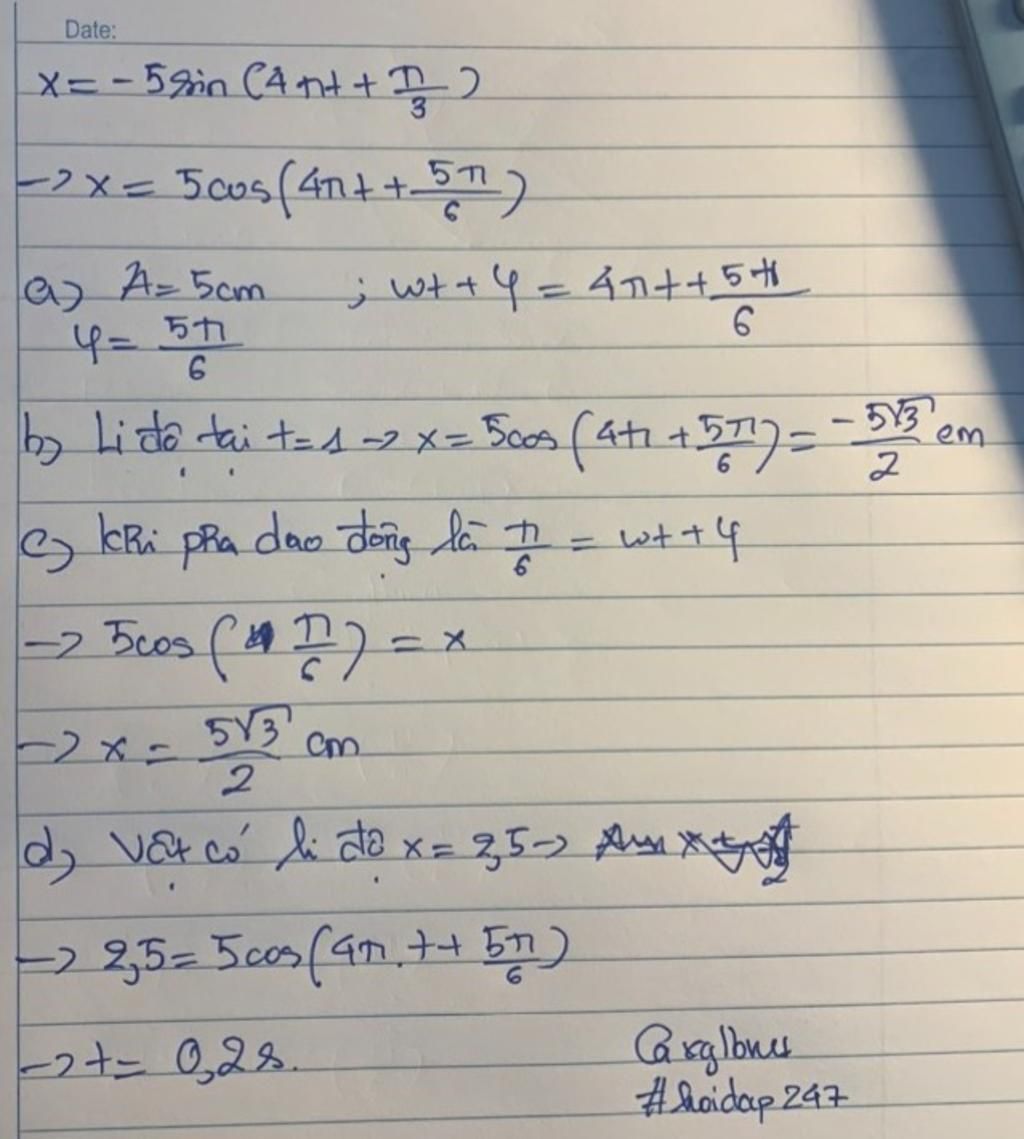 Date:
x = -5sin (4πt + π/3)
→ x = 5cos(4πt + 5π/6)
a) A = 5cm ; ωt + φ = 4πt + 5π/6
φ = 5π/6
b) Li độ tại t=1 → x = 5cos (4π + 5π/6) = -5√3/2 cm
c) khi pha dao động là π/6 = ωt + φ
→ 5cos (π/6) = x
→ x = 5√3/2 cm
d) Vật có li độ x = 2,5 →
→ 2,5 = 5cos(4π.t + 5π/6)
→ t = 0,2s.
@xglbnu
#hoidap247